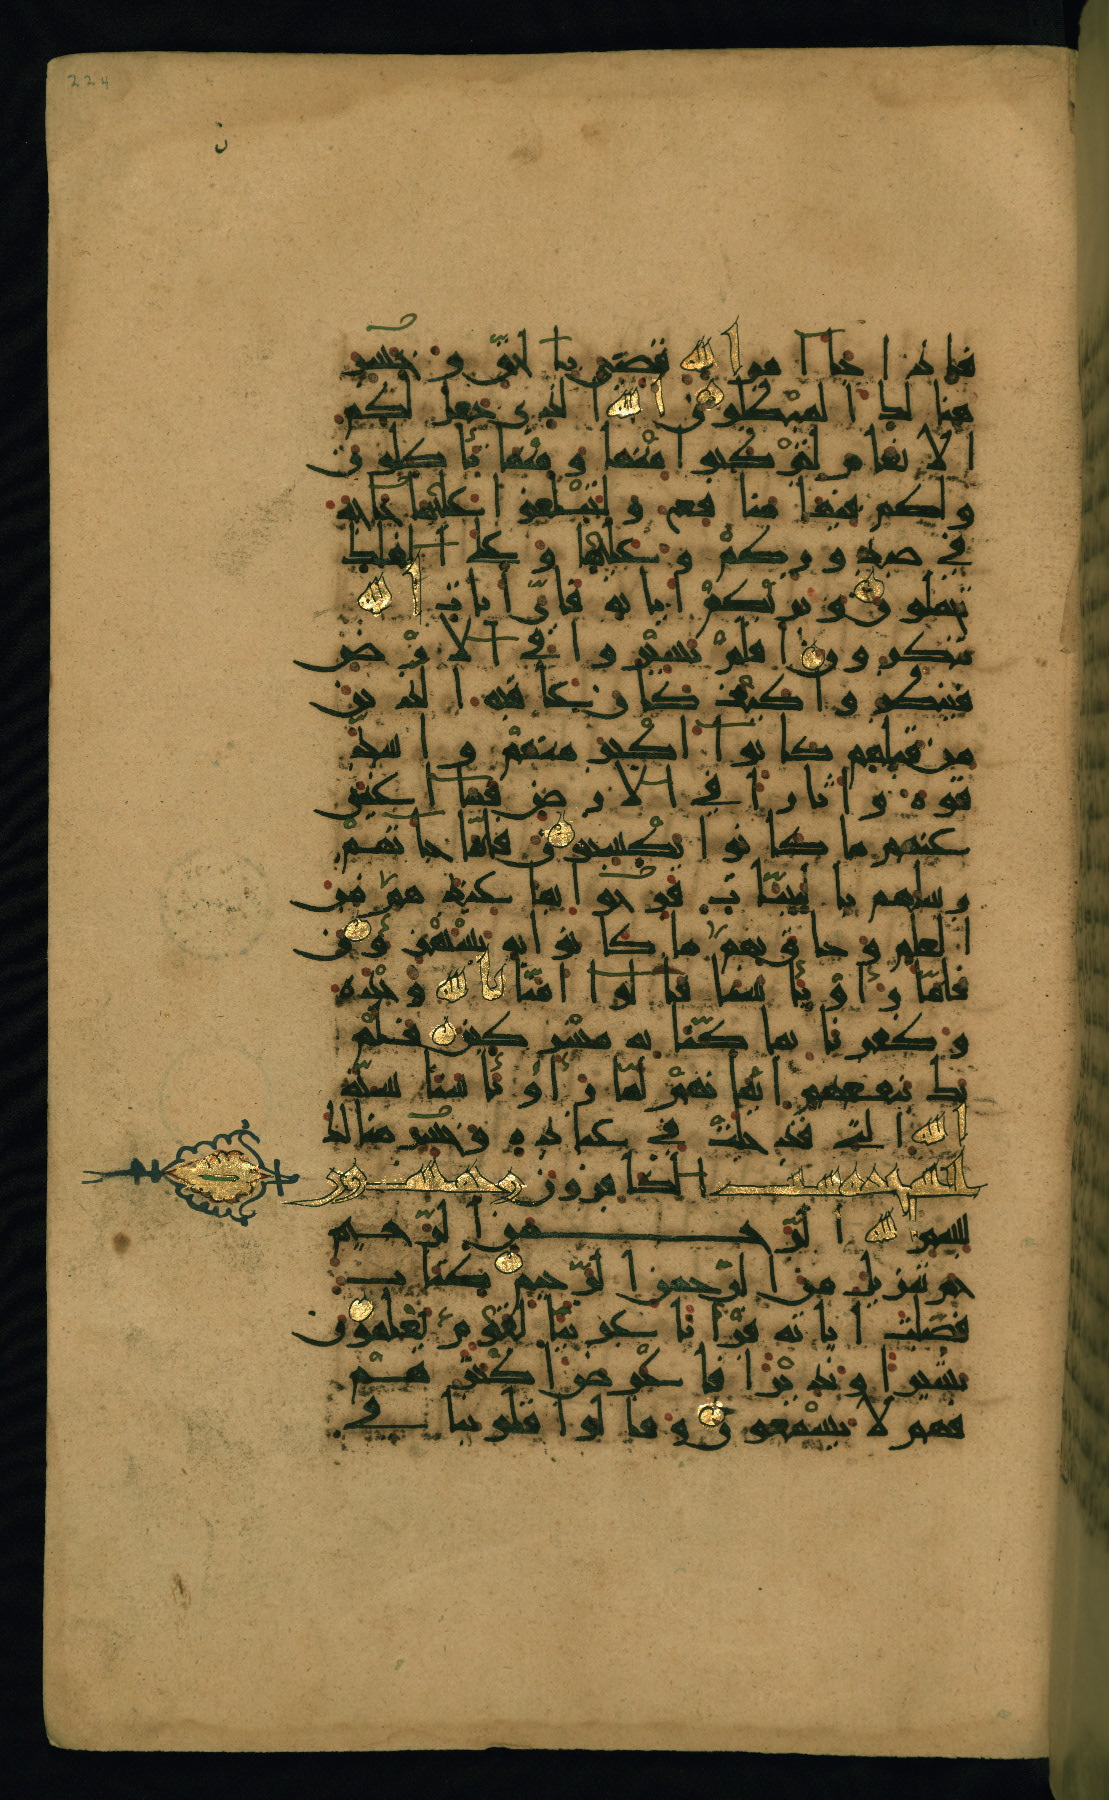 224
ن
فاذا جا امر الله قضى بالحق وخسر
هنالك المبطلون الله الذي جعل لكم
الانعام لتركبوا منها ومنها تاكلون
ولكم فيها منافع ولتبلغوا عليها حاجة
في صدوركم وعليها وعلى الفلك
تحملون ويريكم اياته فاي ايات الله
تنكرون افلم يسيروا في الارض
فينظروا كيف كان عاقبة الذين
من قبلهم كانوا اكثر منهم واشد
قوة واثارا في الارض فما اغنى
عنهم ما كانوا يكسبون فلما جاتهم
رسلهم بالبينات فرحوا بما عندهم من
العلم وحاق بهم ما كانوا به يستهزؤن
فلما راوا باسنا قالوا امنا بالله وحده
وكفرنا بما كنا به مشركين فلم
يك ينفعهم ايمانهم لما راوا باسنا سنت
الله التي قد خلت في عباده وخسر هنالك
الكافرون
بسم الله الرحمن الرحيم
حم تنزيل من الرحمن الرحيم كتاب
فصلت اياته قرانا عربيا لقوم يعلمون
بشيرا ونذيرا فاعرض اكثرهم
فهم لا يسمعون وقالوا قلوبنا في